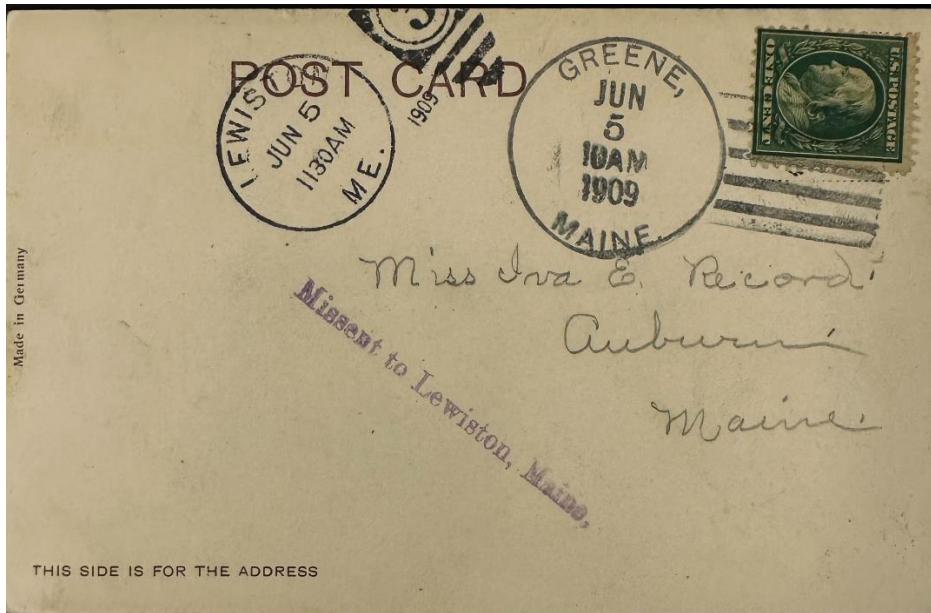 POST CARD
LEWISTON
JUN 5
1130AM
ME.
1909
GREENE,
JUN
5
10AM
1909
MAINE.
U.S. POSTAGE
ONE CENT
Miss Iva E. Record
Auburn
Maine.
Missent to Lewiston, Maine,
Made in Germany
THIS SIDE IS FOR THE ADDRESS